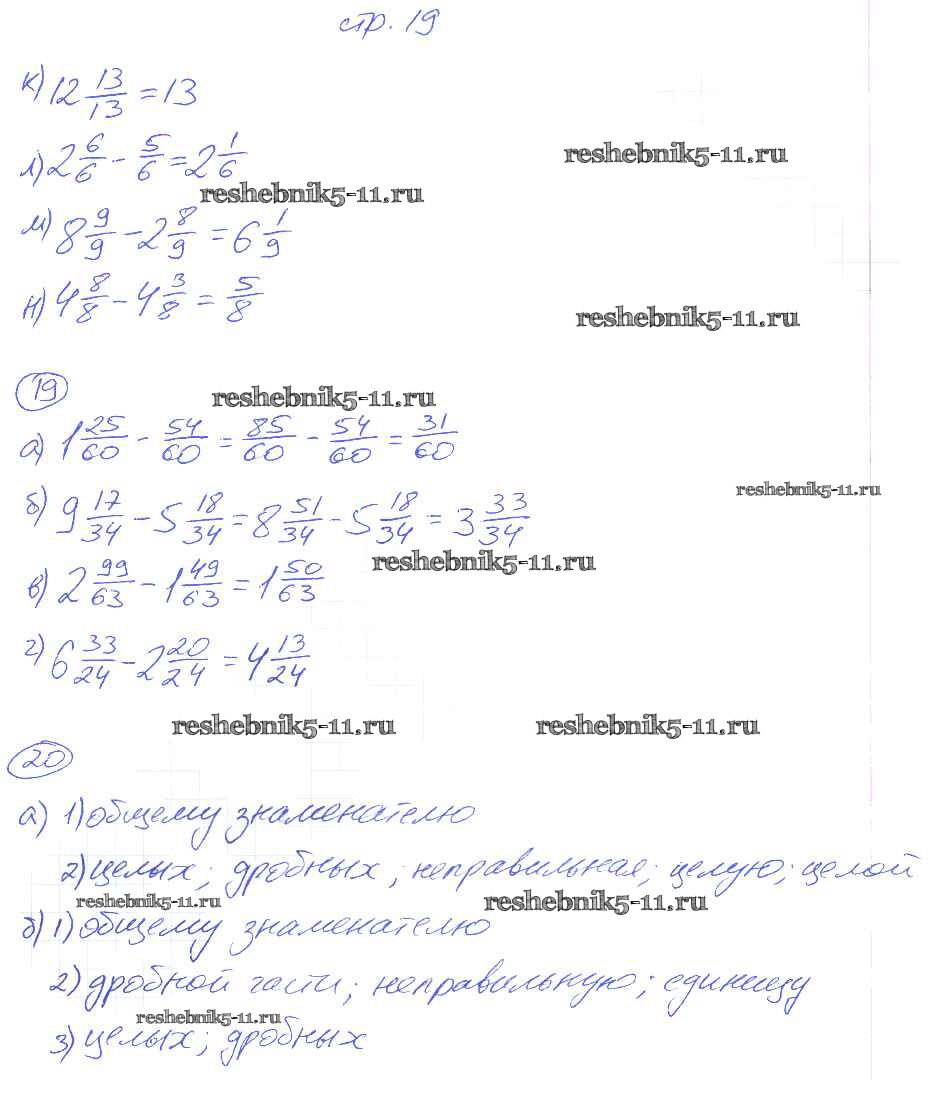 стр. 19
к) 12 13/13 = 13
л) 2 6/6 - 5/6 = 2 1/6
reshebnik5-11.ru
reshebnik5-11.ru
м) 8 9/9 - 2 8/9 = 6 1/9
н) 4 8/8 - 4 3/8 = 5/8
reshebnik5-11.ru
19
reshebnik5-11.ru
а) 1 25/60 - 54/60 = 85/60 - 54/60 = 31/60
reshebnik5-11.ru
б) 9 17/34 - 5 18/34 = 8 51/34 - 5 18/34 = 3 33/34
reshebnik5-11.ru
в) 2 99/63 - 1 49/63 = 1 50/63
г) 6 33/24 - 2 20/24 = 4 13/24
reshebnik5-11.ru reshebnik5-11.ru
20
а) 1) общему знаменателю
2) целых; дробных; неправильная; целую; целой
reshebnik5-11.ru reshebnik5-11.ru
б) 1) общему знаменателю
2) дробной части; неправильную; единицу
reshebnik5-11.ru
3) целых; дробных